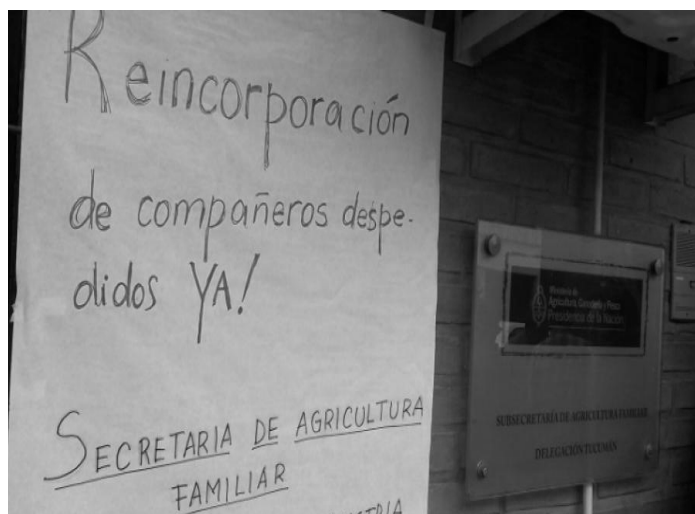 Reincorporación
de compañeros despe-
didos YA!
SECRETARIA DE AGRICULTURA
FAMILIAR
Ministerio de
Agricultura, Ganadería y Pesca
Presidencia de la Nación
SUBSECRETARÍA DE AGRICULTURA FAMILIAR
DELEGACIÓN TUCUMÁN